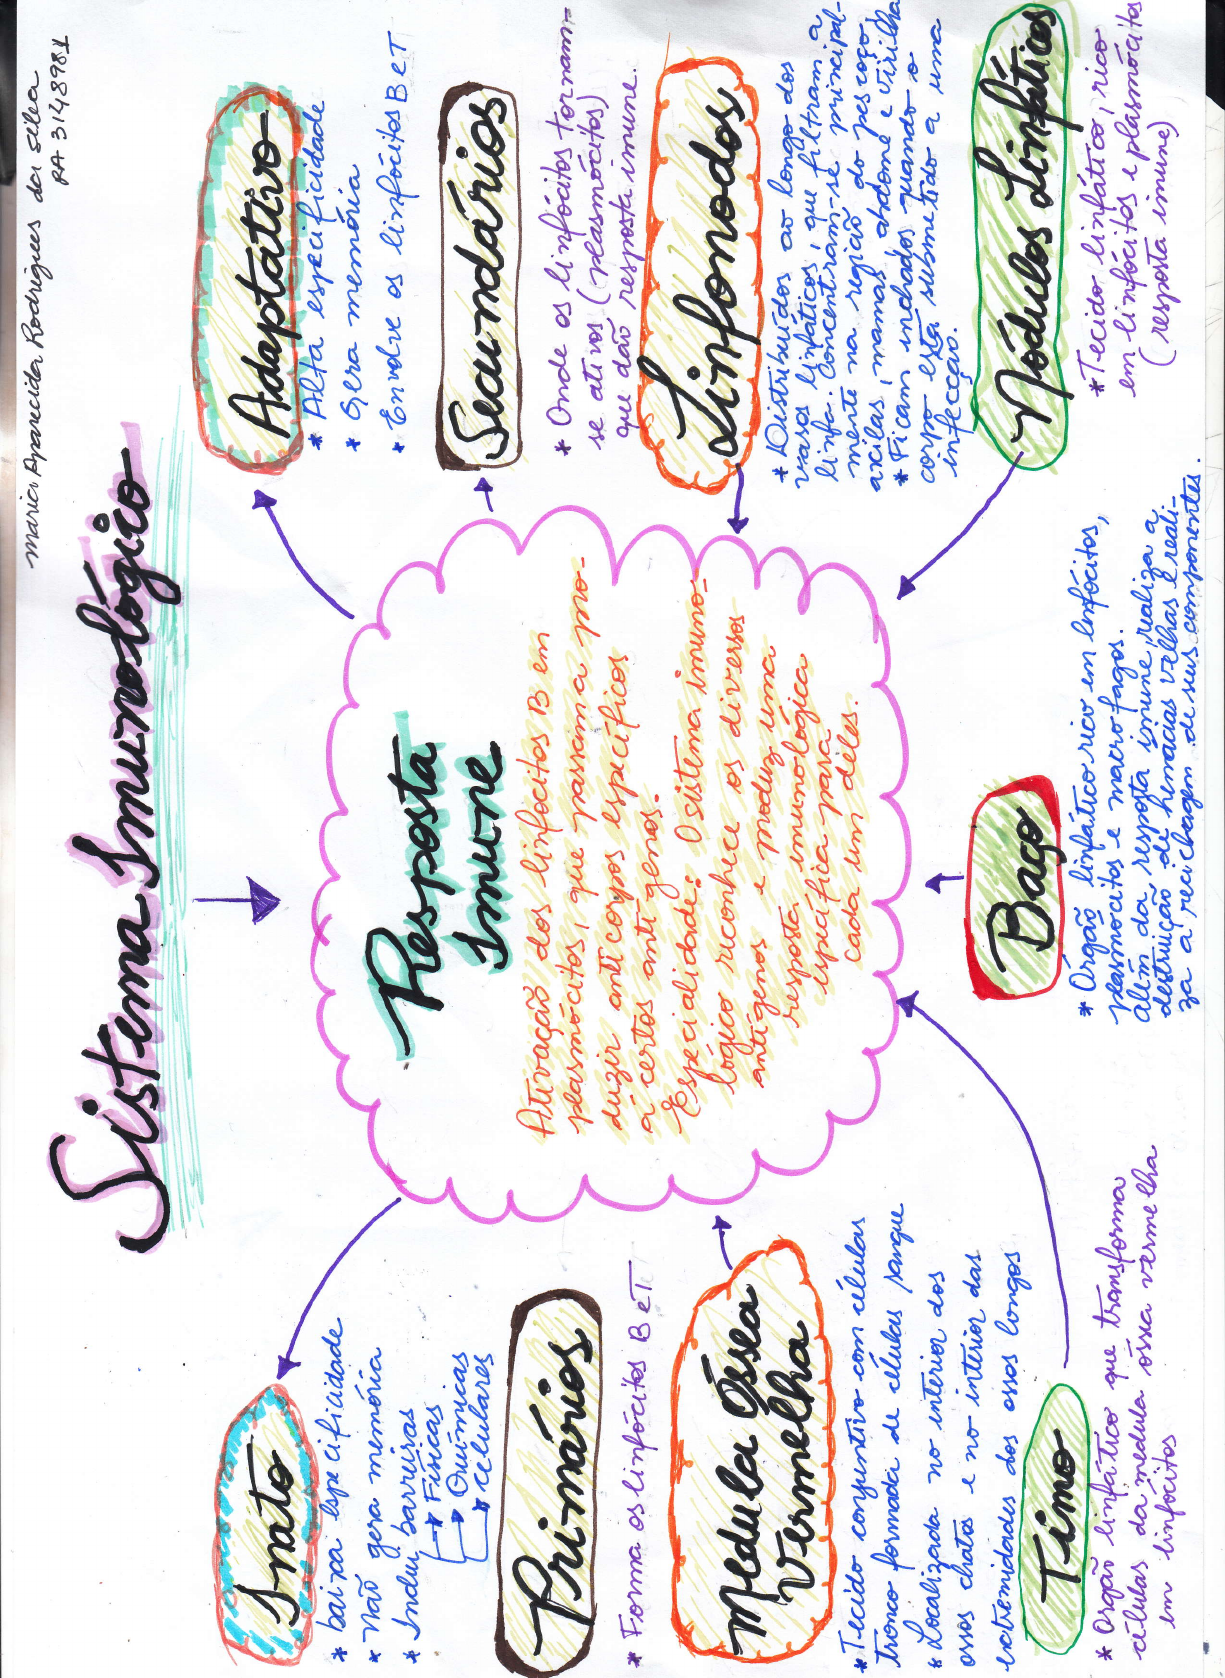 Maria Aparecida Rodrigues da Silva
RA 3148981
Sistema Imunológico
Inato
* baixa especificidade
* Não gera memória
* Inclui barreiras
Físicas
Químicas
celulares
Adaptativo
* Alta especificidade
* Gera memória
* Envolve os linfócitos B e T
Resposta
Imune
Ativação dos linfocitos B em
plasmócitos, que passam a pro-
duzir anticorpos específicos
a certos antigenos.
Especialidade: O sistema imuno-
lógico reconhece os diversos
antígenos e produz uma
resposta imunológica
específia para
cada um deles.
Primários
* Forma os linfócitos B e T
Secundários
* Onde os linfócitos tornam-
se ativos (plasmócitos)
que dão resposta imune.
Medula Óssea
Vermelha
* Tecido conjuntivo com células
tronco formada de células sangue
* Localizada no interior dos
ossos chatos e no intérior das
extremidades dos ossos longos
Linfonodos
* Distribuídos ao longo dos
vasos linfáticos, que filtram a
linfa. Concentram-se principal-
mente na região do pescoço
axilas, mamas, abdome e virilha
* Ficam inchados quando o
corpo está submetido a uma
infecção.
Timo
* Orgão linfático que transforma
células da medula óssea vermelha
em linfócitos
Baço
* Orgão linfático rico em linfócitos,
plasmocitos e macrofagos.
Além da resposta imune, realiza a
destruição de hemacias velhas e reali-
za a reciclagem de seus componentes.
Nódulos Linfáticos
* Tecido linfático, rico
em linfócitos e plasmócitos
(resposta imune)